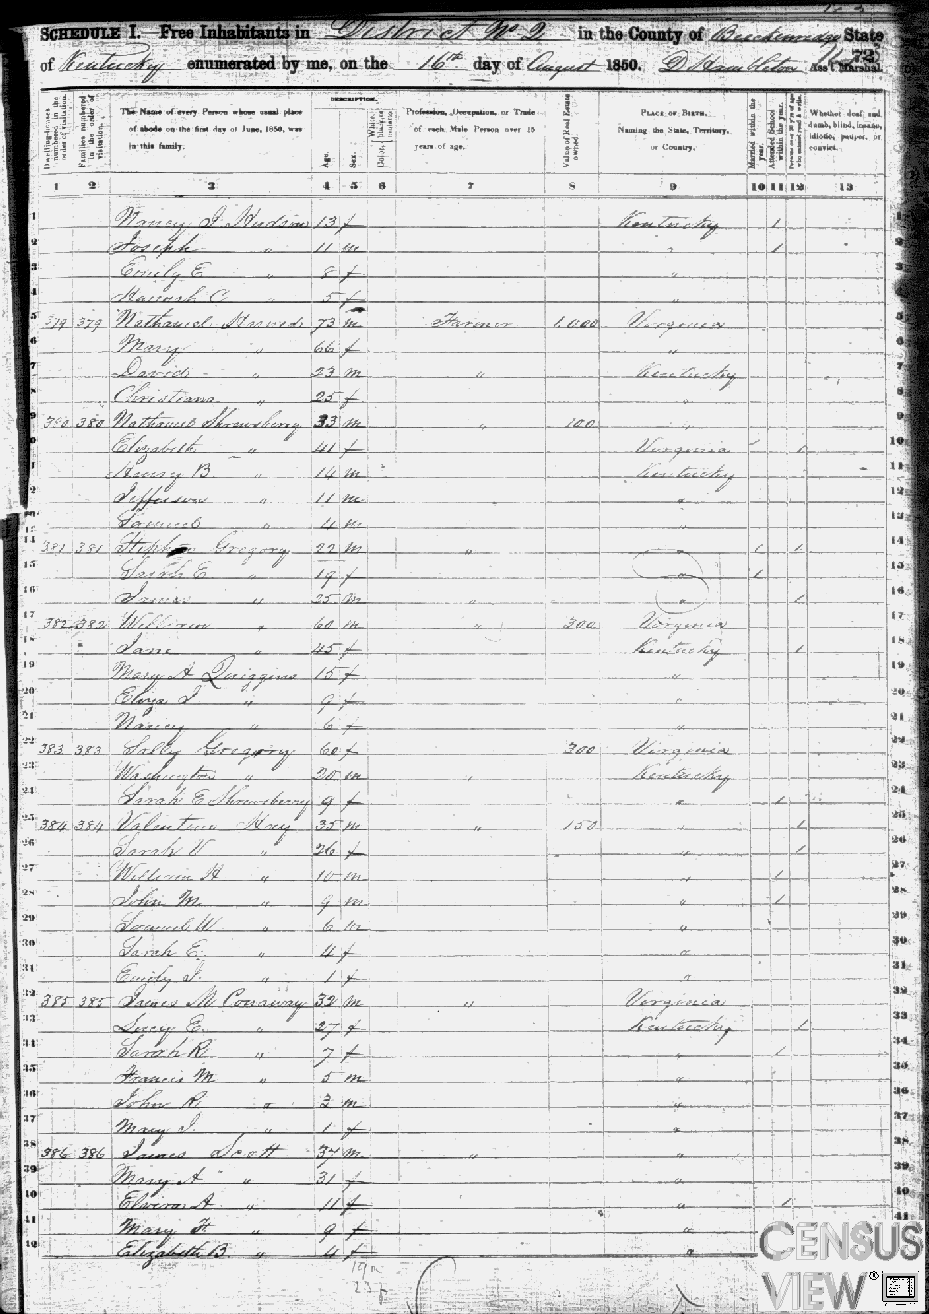 SCHEDULE I.—Free Inhabitants in District No 2 in the County of Breckenridge State
of Kentucky enumerated by me, on the 16th day of August 1850. D Hambleton Ass't Marshal.
73
Dwelling-houses numbered in the order of visitation.
Families numbered in the order of visitation.
The Name of every Person whose usual place of abode on the first day of June, 1850, was in this family.
DESCRIPTION.
Age.
Sex.
Color, White, black, or mulatto
Profession, Occupation, or Trade of each Male Person over 15 years of age.
Value of Real Estate owned.
PLACE OF BIRTH, Naming the State, Territory, or Country.
Married within the year.
Attended School within the year.
Persons over 20 y'rs of age who cannot read & write.
Whether deaf and dumb, blind, insane, idiotic, pauper, or convict.
1 2 3 4 5 6 7 8 9 10 11 12 13
1 Nancy J Hudson 13 f Kentucky 1 1
2 Joseph " 11 m " 1 2
3 Emily E " 8 f " 3
4 Hannah C " 5 f " 4
5 379 379 Nathaniel 73 m Farmer 1,000 Virginia 5
6 Mary " 66 f " 6
7 David " 23 m " Kentucky 7
8 Christiana " 25 f " 8
9 380 380 Nathaniel Shrewsberry 33 m " 100 " 9
10 Elizabeth " 41 f Virginia 1 10
11 Henry B " 14 m Kentucky 11
12 Jefferson " 11 m " 12
13 Samuel " 4 m " 13
14 381 381 Stephen Gregory 22 m " 1 1 14
15 Sarah E " 19 f " 1 15
16 James " 25 m " " 1 16
17 382 382 William " 60 m " 300 Virginia 17
18 Jane " 45 f Kentucky 1 18
19 Mary A Quiggins 15 f " 19
20 Eliza J " 9 f " 20
21 Nancy " 6 f " 21
22 383 383 Sally Gregory 60 f 300 Virginia 22
23 Washington " 20 m " Kentucky 23
24 Sarah E Shrewsberry 9 f " 1 24
25 384 384 Valentine Hay 35 m " 150 " 1 25
26 Sarah W " 26 f " 1 26
27 William H " 10 m " 1 27
28 John M. " 9 m " 1 28
29 Samuel W. " 6 m " 29
30 Sarah E. " 4 f " 30
31 Emily J. " 1 f " 31
32 385 385 James M Conaway 32 m " Virginia 32
33 Lucy E. " 27 f Kentucky 1 33
34 Sarah R " 7 f " 1 34
35 Francis M " 5 m " 35
36 John R. " 3 m " 36
37 Mary J. " 1 f " 37
38 386 386 James Scott 34 m " " 38
39 Mary A " 31 f " 39
40 A " 11 f " 1 40
41 Mary F " 9 f " 41
42 Elizabeth B " 4 f "
CENSUS
VIEW®